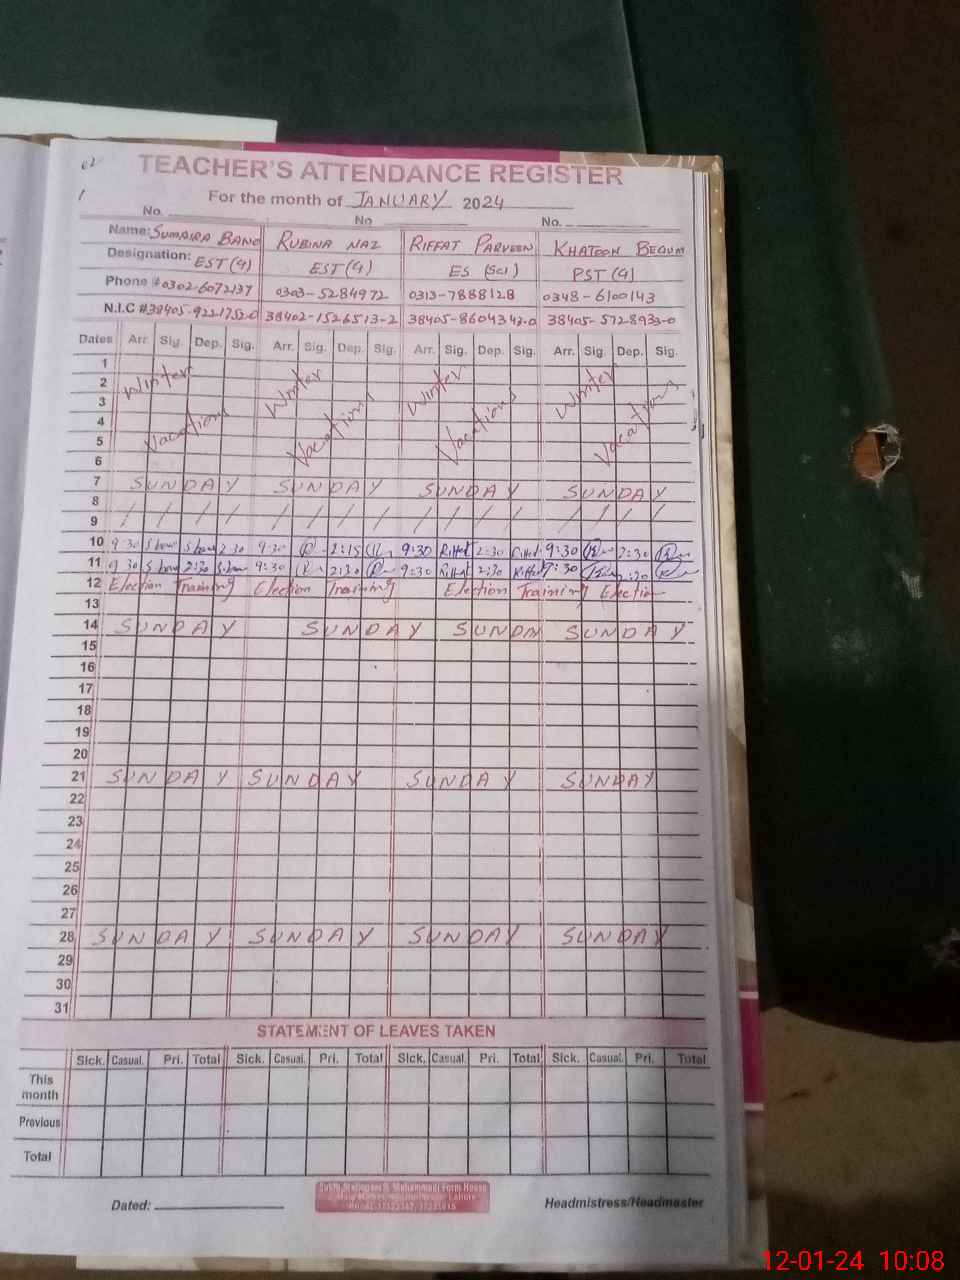 TEACHER'S ATTENDANCE REGISTER
For the month of JANUARY 2024
No. No No.
Name: SUMAIRA BANO RUBINA NAZ RIFFAT PARVEEN KHATOON BEGUM
Designation: EST (G) EST (G) ES (Sci) PST (G)
Phone # 0302-6072137 0303-5284972 0313-7888128 0348-6100143
N.I.C # 38405-9221752-0 38402-1526513-2 38405-8604343-0 38405-5728933-0
Dates Arr. Sig. Dep. Sig. Arr. Sig. Dep. Sig. Arr. Sig. Dep. Sig. Arr. Sig. Dep. Sig.
1
2 Winter Winter Winter Winter
3
4
5 Vacations Vacations Vacations Vacations
6
7 SUNDAY SUNDAY SUNDAY SUNDAY
8
9 / / / / / / / / / / / / / / / /
10 9-30 2-30 9-30 2:15 9:30 Riffat 2:30 Riffat 9:30 2:30
11 9 30 2:30 9:30 2:30 9:30 Riffat 2:30 Riffat 9:30 2:30
12 Election Training Election Training Election Training Election
13
14 SUNDAY SUNDAY SUNDA SUNDAY
15
16
17
18
19
20
21 SUNDAY SUNDAY SUNDAY SUNDAY
22
23
24
25
26
27
28 SUNDAY SUNDAY SUNDAY SUNDAY
29
30
31
STATEMENT OF LEAVES TAKEN
Sick. Casual. Pri. Total Sick. Casual. Pri. Total Sick. Casual. Pri. Total Sick. Casual. Pri. Total
This
month
Previous
Total
Muhammadi Form House
Lahore
Dated: Headmistress/Headmaster
12-01-24 10:08